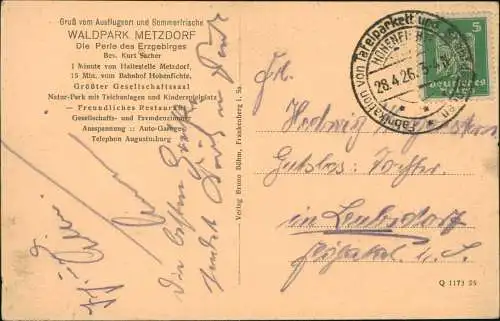 Gruß vom Ausflugsort und Sommerfrische
WALDPARK METZDORF
Die Perle des Erzgebirges
Bes. Kurt Sacher
1 Minute von Haltestelle Metzdorf,
15 Min. vom Bahnhof Hohenfichte.
Größter Gesellschaftssaal
Natur-Park mit Teichanlagen und Kinderspielplatz
— Freundliches Restaurant —
Gesellschafts- und Fremdenzimmer
Ausspannung :: Auto-Garage
Telephon Augustusburg
Die besten Grüße
sendet
Verlag Bruno Böhm, Frankenberg i. Sa.
Fabrikation von Tafelparkett und
HOHENFICHTE
28.4.26.
5
Deutsches Reich
Frl.
Hedwig
Gutsbes. Tochter
in Leubsdorf
i. S.
Q 1173 25